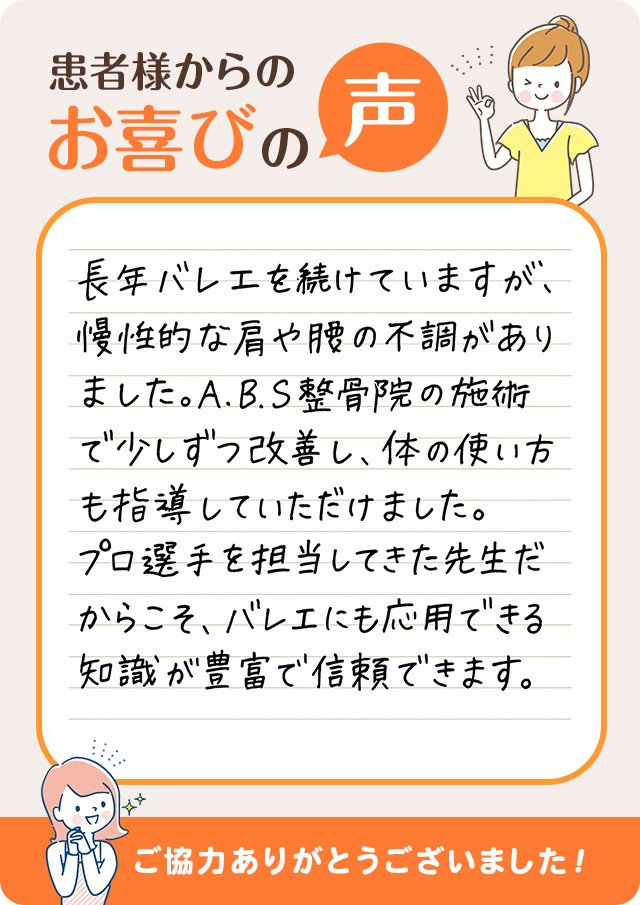 患者様からの
お喜びの声
長年バレエを続けていますが、
慢性的な肩や腰の不調があり
ました。A.B.S整骨院の施術
で少しずつ改善し、体の使い方
も指導していただけました。
プロ選手を担当してきた先生だ
からこそ、バレエにも応用できる
知識が豊富で信頼できます。
ご協力ありがとうございました!